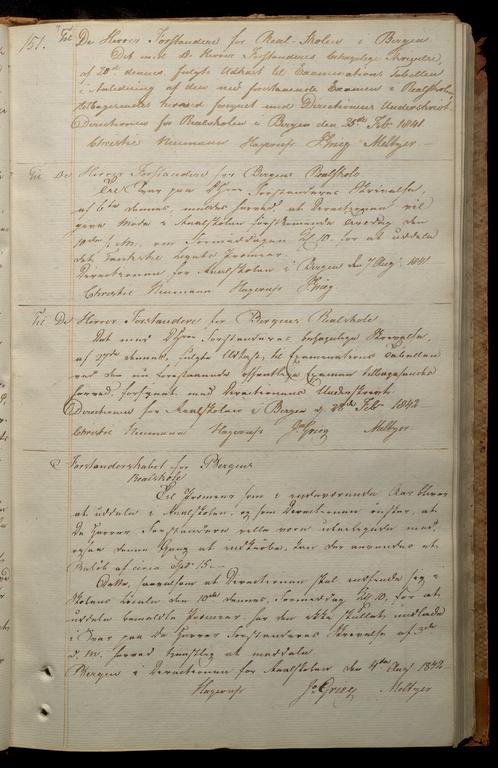 151. Til De Herrer Forstandere for Real-Skolen i Bergen
Det med De Herrer Forstanderes behagelige Skrivelse,
af 20de dennes, fulgte Udkast til Examinations Tabellen
i Anledning af den nu forestaaende Examen i Realskolen
tilbagesendes herved forsynet med Directionens Underskrivt.
Directionen for Realskolen i Bergen den 25de Feb. 1841.
Christie Neumann Hagerup J Grieg Meltzer
Til De Herrer Forstandere for Bergens Realskole
Til Svar paa Dhrr Forstanderes Skrivelse,
af 6te dennes, meldes herved, at Directionen vil
give Møde i Realskolen førstkommende Tirsdag den
10de d. M., om Formiddagen Kl. 10, for at uddele
det Legats Premier.
Directionen for Realskolen i Bergen den 7 Aug. 1841
Christie Neumann Hagerup Grieg
Til De Herrer Forstandere for Bergens Realskole
Det med Dhrr Forstanderes behagelige Skrivelse,
af 17de dennes, fulgte Udkast til Examinations Tabellen
ved den nu forestaaende offentlige Examen tilbagesendes
herved, forsynet med Directionens Underskrivt.
Directionen for Realskolen i Bergen d. 28de Feb. 1842
Christie Neumann Hagerup J Grieg Meltzer.
Forstanderskabet for Bergens
Realskole
Til Premier som i indeværende Aar blive
at uddele i Realskolen, og som Directionen ønsker, at
De Herrer Forstandere ville være
ogsaa denne Gang at indkjøbe, kan der anvendes et
Beløb af circa Spd 15.
Dette, saavelsom at Directionen skal indfinde sig i
Skolens Locale den 10de dennes, Formiddag Kl. 10, for at
uddele bemeldte Premier, har den ikke skullet undlade
i Svar paa De Herrer Forstanderes Skrivelse af
d. M. herved tjenstligst at meddele.
Bergen i Directionen for Realskolen den 4de Aug 1842
Hagerup J Grieg Meltzer